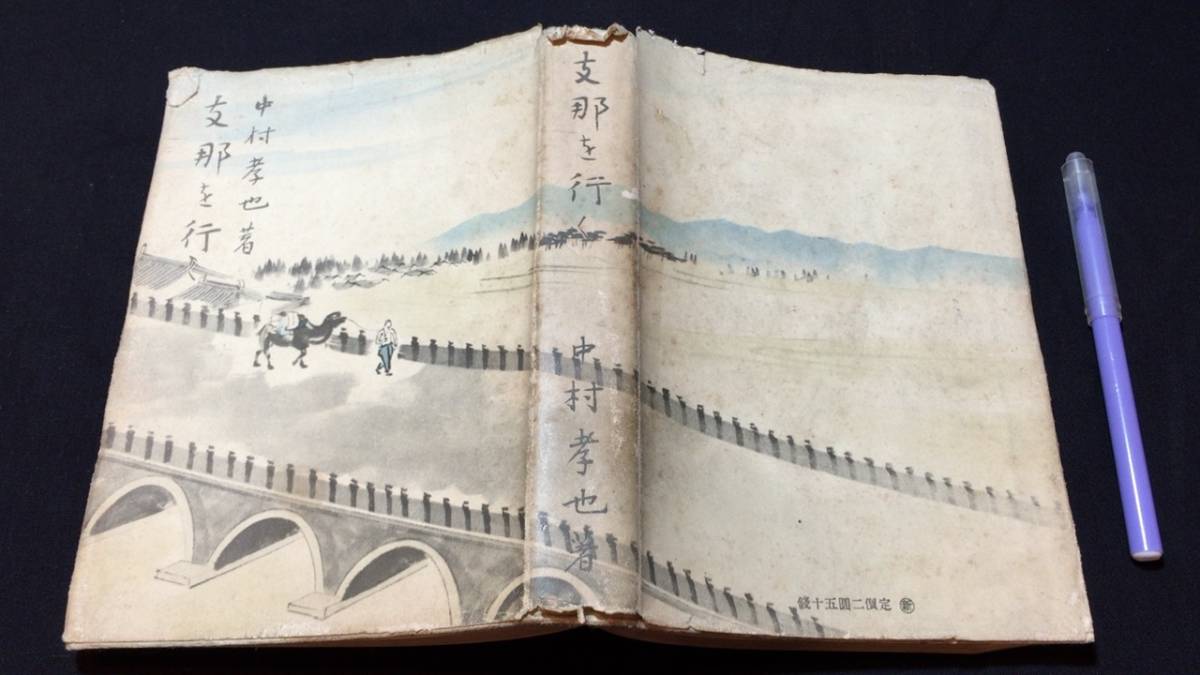 中村孝也著
支那を行く
支那を行く
中村孝也著
新 定價二圓五十錢